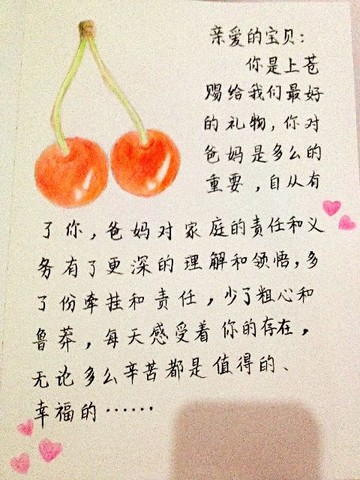 亲爱的宝贝：
你是上苍
赐给我们最好
的礼物，你对
爸妈是多么的
重要，自从有
了你，爸妈对家庭的责任和义
务有了更深的理解和领悟，多
了份牵挂和责任，少了粗心和
鲁莽，每天感受着你的存在，
无论多么辛苦都是值得的、
幸福的……